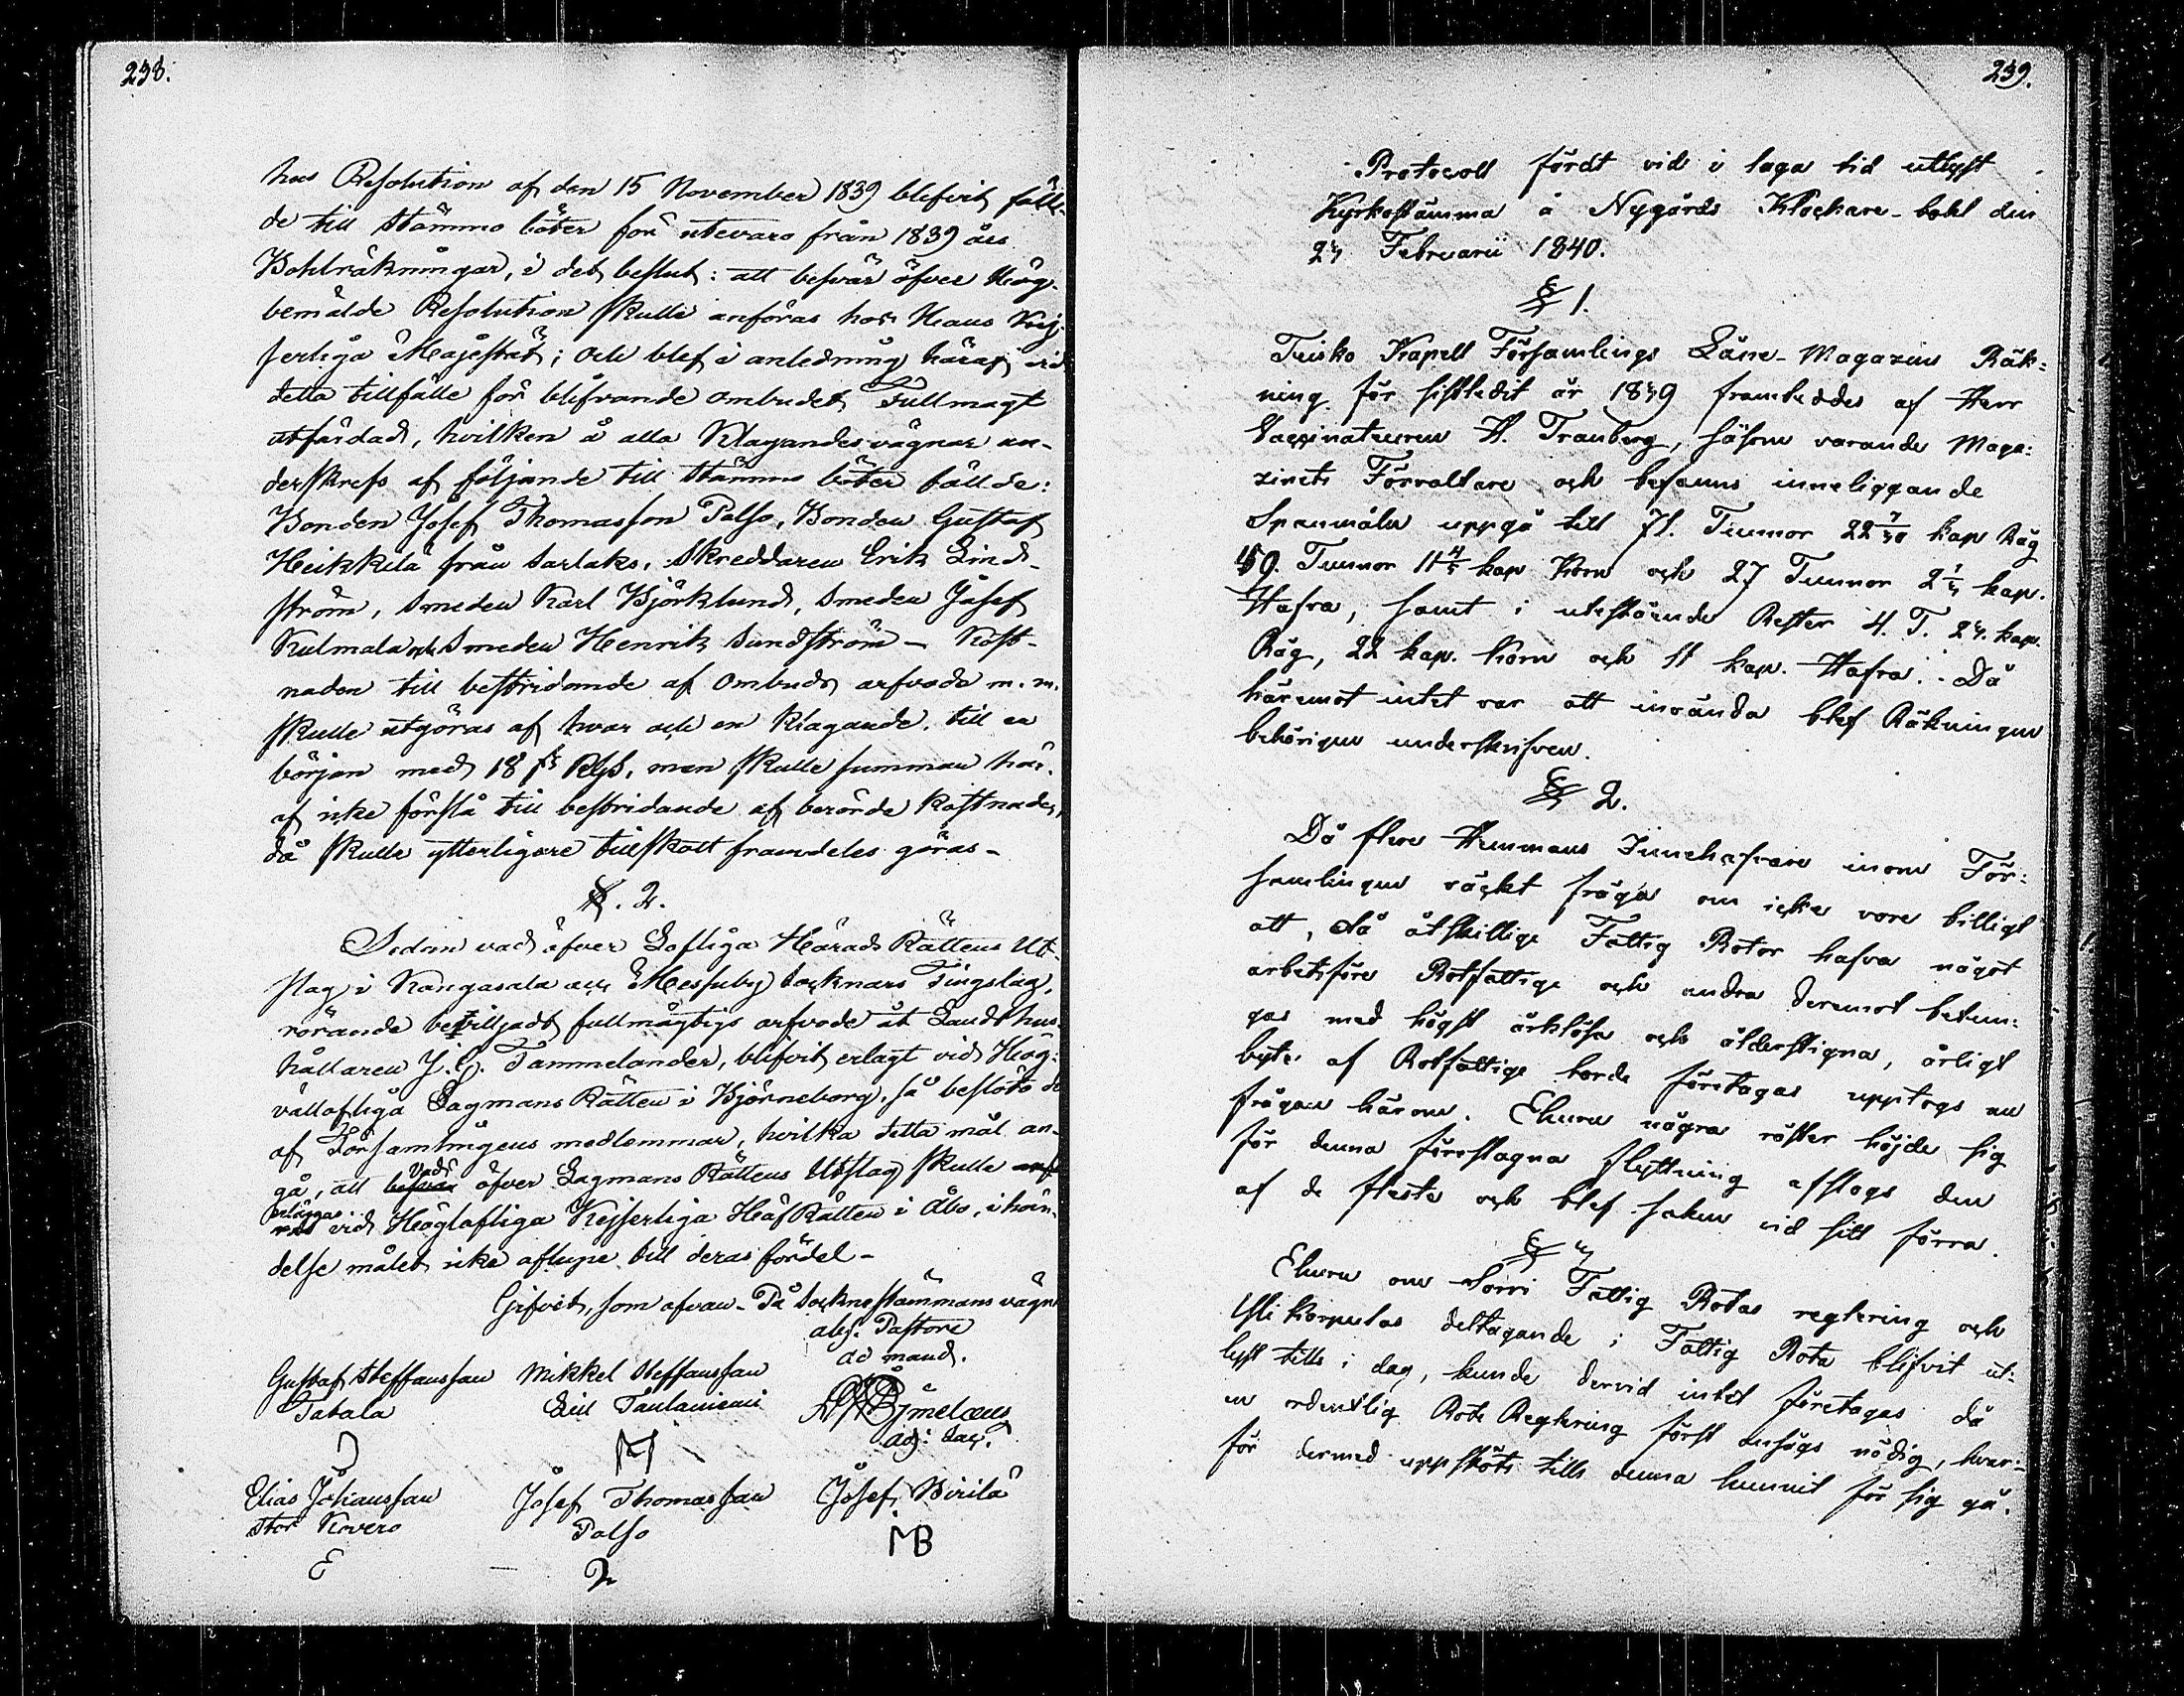 238.
hus Resolution af den 15 November 1839 blefvit fäll-
de till Stämmo böter för utevaro från 1839 års
Bohlräkningar, i det beslut: att besvär öfver Hög-
bemälde Resolution skulle anföras hos Hans Kej-
serliga Majestät; och blef i anledning häraf vid
detta tillfälle för blifvande ombudet Fullmagt
utfärdad, hvilken å alla Klagandes vägnar un-
derskrefs af följande till Stämmo böter fällde:
Bonden Josef Thomasson Palso, Bonden Gustaf
Heikkilä från Sarlaks, Skreddaren Erik Lind-
ström, Smeden Karl Björklund, Smeden Josef
Kulmala och Smeden Henrik Sundström - Kost-
naden till bestridande af Ombuds arfvode m. m.
skulle utgöras af hvar och en Klagande till en
början med 18 Rbls, men skulle summan här-
af icke förslå till bestridande af berörde kostnader,
då skulle ytterligare tillskott framdeles göras -
§. 2.
Sedan vad öfver Lofliga Härads Rättens Ut-
slag i Kangasala och Messuby Socknars Tingslag,
rörande beviljadt fullmägtigs arfvode åt Landthus-
hållaren J. G. Tammelander, blifvit erlagt vid Hög-
vällofliga Lagmans Rätten i Björneborg, så beslöto de
af Församlingens medlemmar, hvilka detta mål an-
gå, att vad öfver Lagmans Rättens Utslag skulle
erläggas vid Höglofliga Kejserliga Hof Rätten i Åbo, i hän-
delse målet icke aflupe till deras fördel -
Gifvet, som ofvan - På Sockne stämmans vägnar
abs: Pastore
ad mand.
Gustaf Steffansson Mikkel Steffansson
Tabala
adj: Sac.
Elias Johansson Josef Thomasson Josef Wirilä
Stor Kovero Palso
E MB
239.
Protocoll fördt vid i laga tid utlyst
Kyrkostämma å Nygårds Klockare-bohl den
23 Februarii 1840.
§ 1.
Teisko Kapell Församlings Låne-Magazins Räk:
ning för sistledit år 1839 framteddes af Herr
Vaccinateuren H. Tranberg, såsom varande Maga:
zinets Förvaltare och befanns inneliggande
Spanmålen uppgå till 71. Tunnor 22 7/30 kap Råg
50. Tunnor 11 4/5 kap Korn och 27 Tunnor 2 1/5 kap.
Hafra, samt i utestående Rester 4. T. 23. kap.
Råg, 22 kap. Korn och 11 kap. Hafra. Då
häremot intet var att invända blef Räkningen
behörigen underskrifven.
§ 2.
Då flere Hemmans Innehafvare inom För:
samlingen väckt fråga om icke vore billigt
att, då åtskillige Fattig Rotor hafva något
arbetsföre Rotfattige och andra deremot betun:
gas med högst orklösa och ålderstigna, årligt
byte af Rotfattige borde företagas upptogs nu
frågan härom. Ehuru några röster höjde sig
för denna föreslagna flyttning afslogs den
af de fleste och blef saken vid sitt förra.
§ 3
Ehuru om Sorri Fattig Rotas reglering och
Yli Korpulas deltagande i Fattig Rota blifvit ut:
lyst tills i dag, kunde dervid intet företagas då
en ordentlig Rote Reglering först ansågs nödig, hvar:
för dermed uppsköts tills denna hunnit för sig gå.